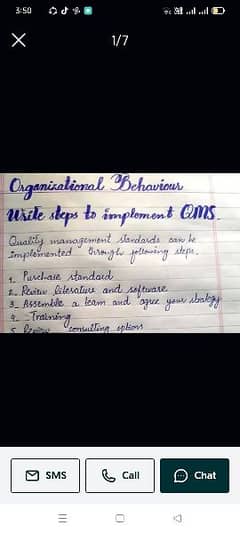 3:50
1/7
Organizational Behaviour
Write steps to implement QMS.
Quality management standards can be
implemented through following steps.
1. Purchase standard
2. Review literature and software
3. Assemble a team and agree your strategy
4. Training
5. Review consulting options
SMS
Call
Chat